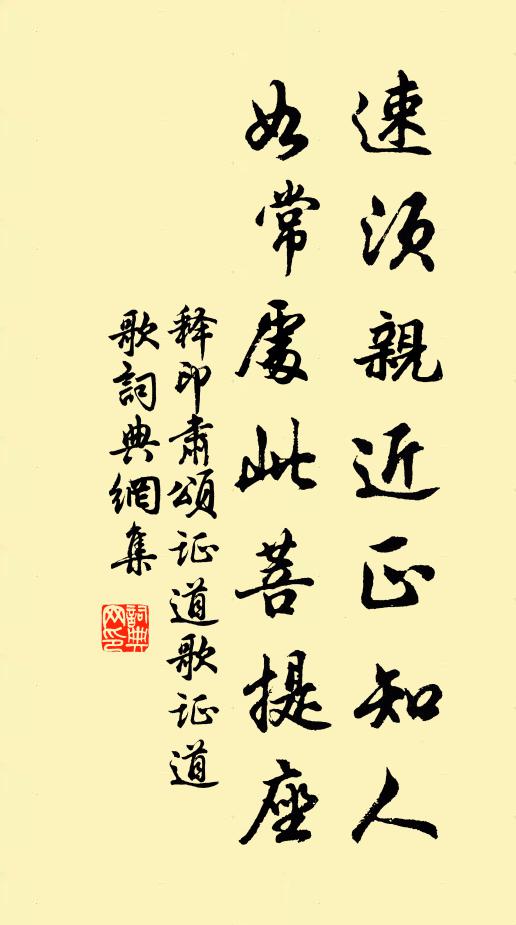 速須親近正知人
如常處此菩提座
释印肃頌证道歌证道
歌詞典網集
詞典
网印